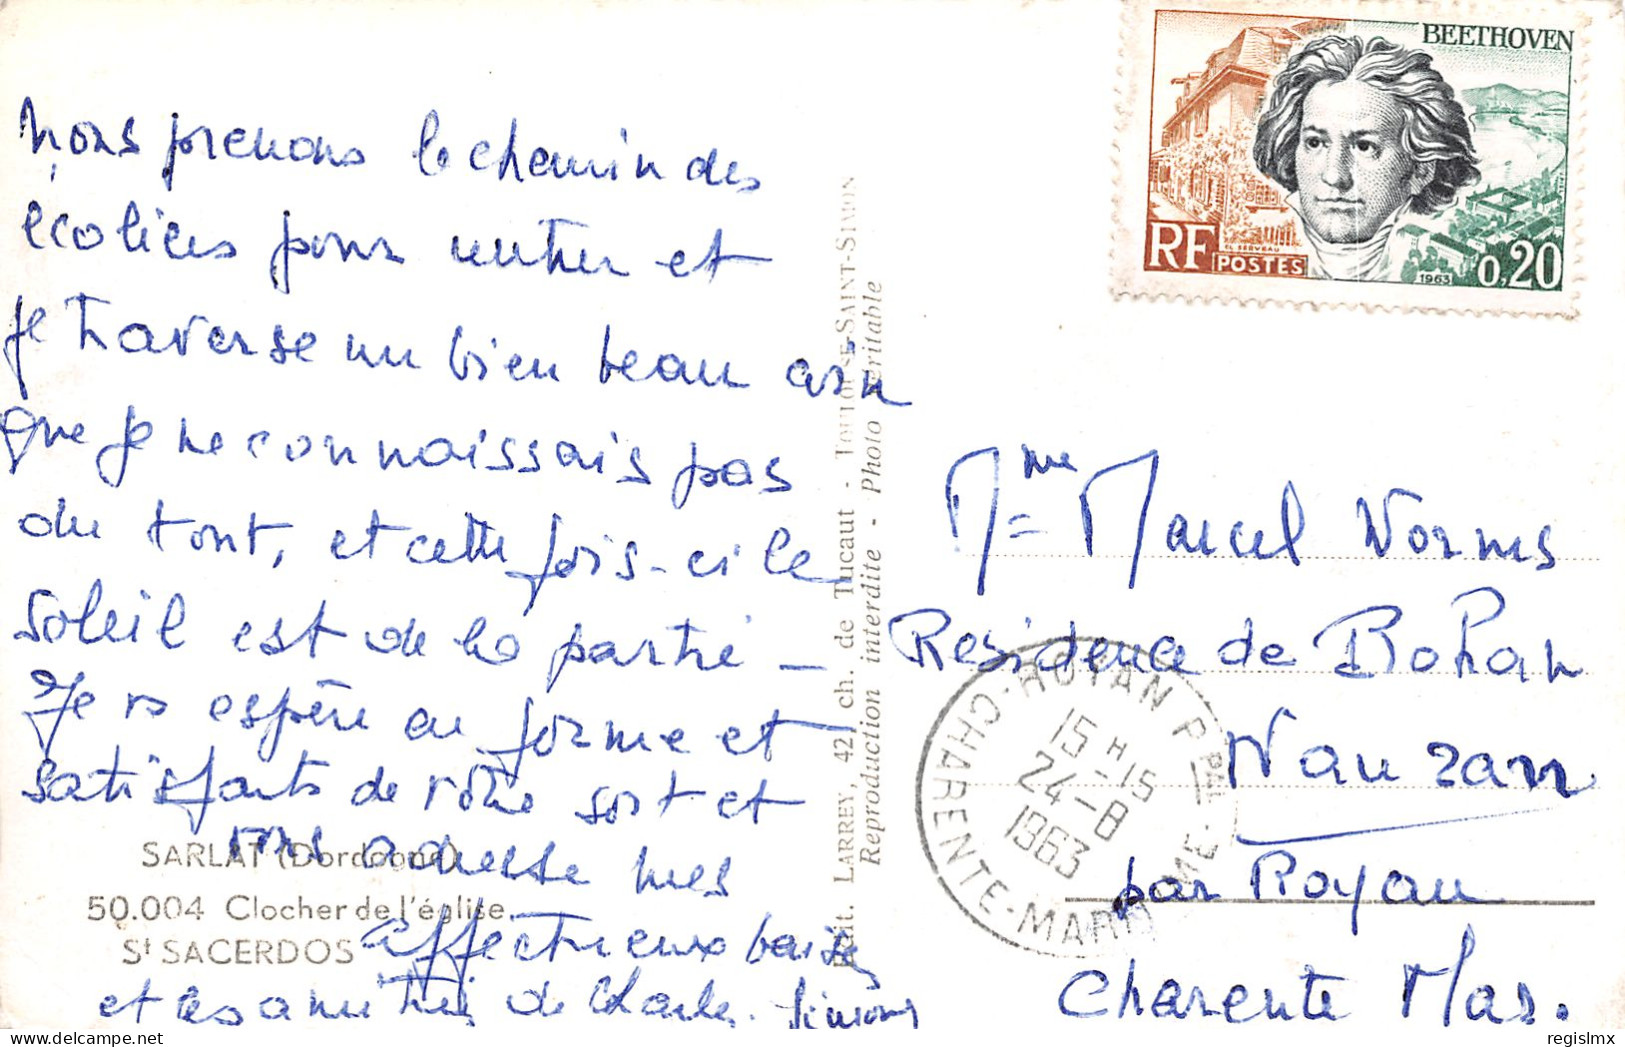 Nous prenons le chemin des
écoliers pour rentrer et
je traverse un bien beau coin
que je ne connaissais pas
du tout, et cette fois-ci le
soleil est de la partie —
Je vs espère en forme et
satisfaits de votre sort et
vous adresse mes
affectueux baisers
et les amitiés de Charles. Simone
SARLAT (Dordogne)
50.004 Clocher de l'église
St SACERDOS
Edit. LARREY, 42, ch. de Tucaut - TOULOUSE-SAINT-SIMON
Reproduction interdite - Photo véritable
BEETHOVEN
RF
POSTES
1963
0,20
ROYAN Pal
CHARENTE-MARITIME
15H15
24-8
1963
Mme Marcel Worms
Residence de Rohan
Nauzan
par Royan
Charente Mar.
regislmx